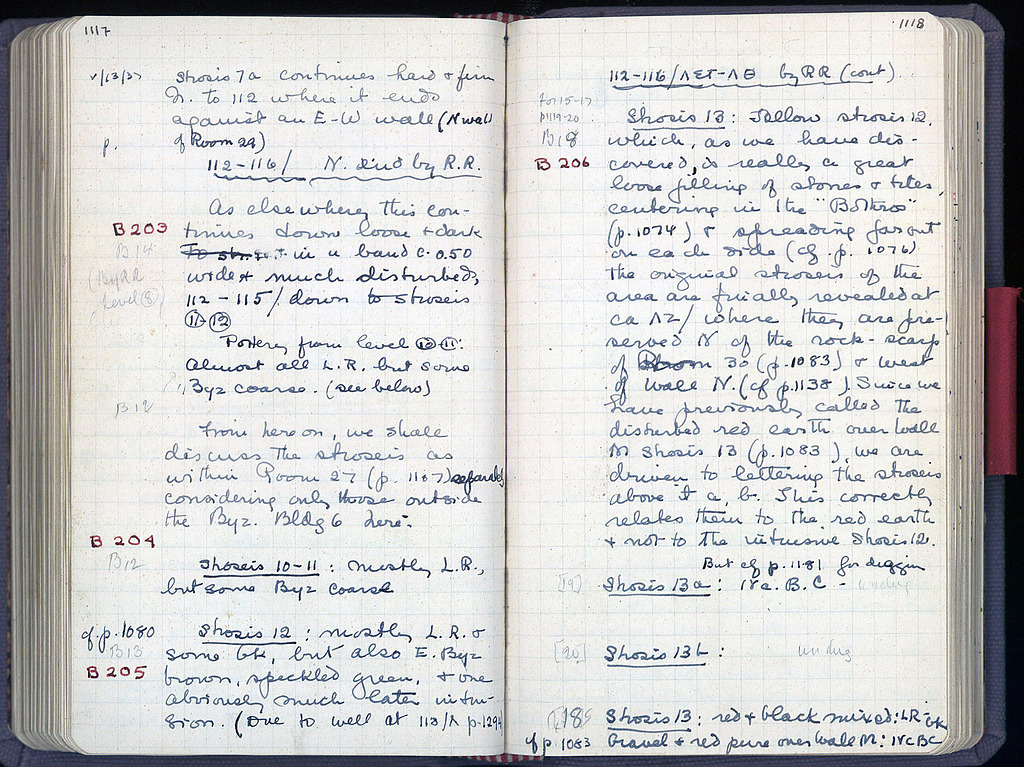 1117
v/13/37 Strosis 7a continues hard & firm
N. to 112 where it ends
against an E-W wall (N wall
p. of Room 29)
112-116/ N. end by R.R.
As elsewhere, this con-
B 203 tinues down loose & dark
B 14 in a band c. 0.50
(By RR wide & much disturbed,
Level 8) 112-115/ down to stroseis
11-12
Pottery from level 10-11:
almost all L.R. but some
Byz coarse. (see below)
B12
From here on, we shall
discuss the stroseis as
within Room 27 (p. 1137) separately
considering only those outside
the Byz. Bldg 6 here.
B 204
B12 Stroseis 10-11: mostly L.R.,
but some Byz coarse
cf. p. 1080 Strosis 12: mostly L.R. &
B13 some Gk, but also E. Byz
B 205 brown, speckled green, & one
obviously much later intru-
sion. (Due to well at 113/Λ p. 1294)
1118
112-116/ΛΣΤ-ΛΘ by RR (cont)
For 15-17
p 1119-20 Strosis 13: Yellow strosis 12,
B18 which, as we have dis-
B 206 covered, is really a great
loose filling of stones & tiles,
centering in the "Bothros"
(p. 1074) & spreading far out
on each side (cf p. 1076)
the original stroseis of the
area are finally revealed at
ca ΛΖ/ where they are pre-
served N of the rock-scarp
of Room 30 (p. 1083) & west
of Wall N. (cf p. 1138). Since we
have previously called the
disturbed red earth over Wall
M Strosis 13 (p. 1083), we are
driven to lettering the stroseis
above it a, b. This correctly
relates them to the red earth
& not to the intrusive Strosis 12.
But cf p. 1181 for digging
[19] Strosis 13a: IV c. B.C - undug
[20] Strosis 13b: undug
185 Strosis 13: red & black mixed: LR - Gk
cf p. 1083 Gravel & red pure over Wall M: IV c BC